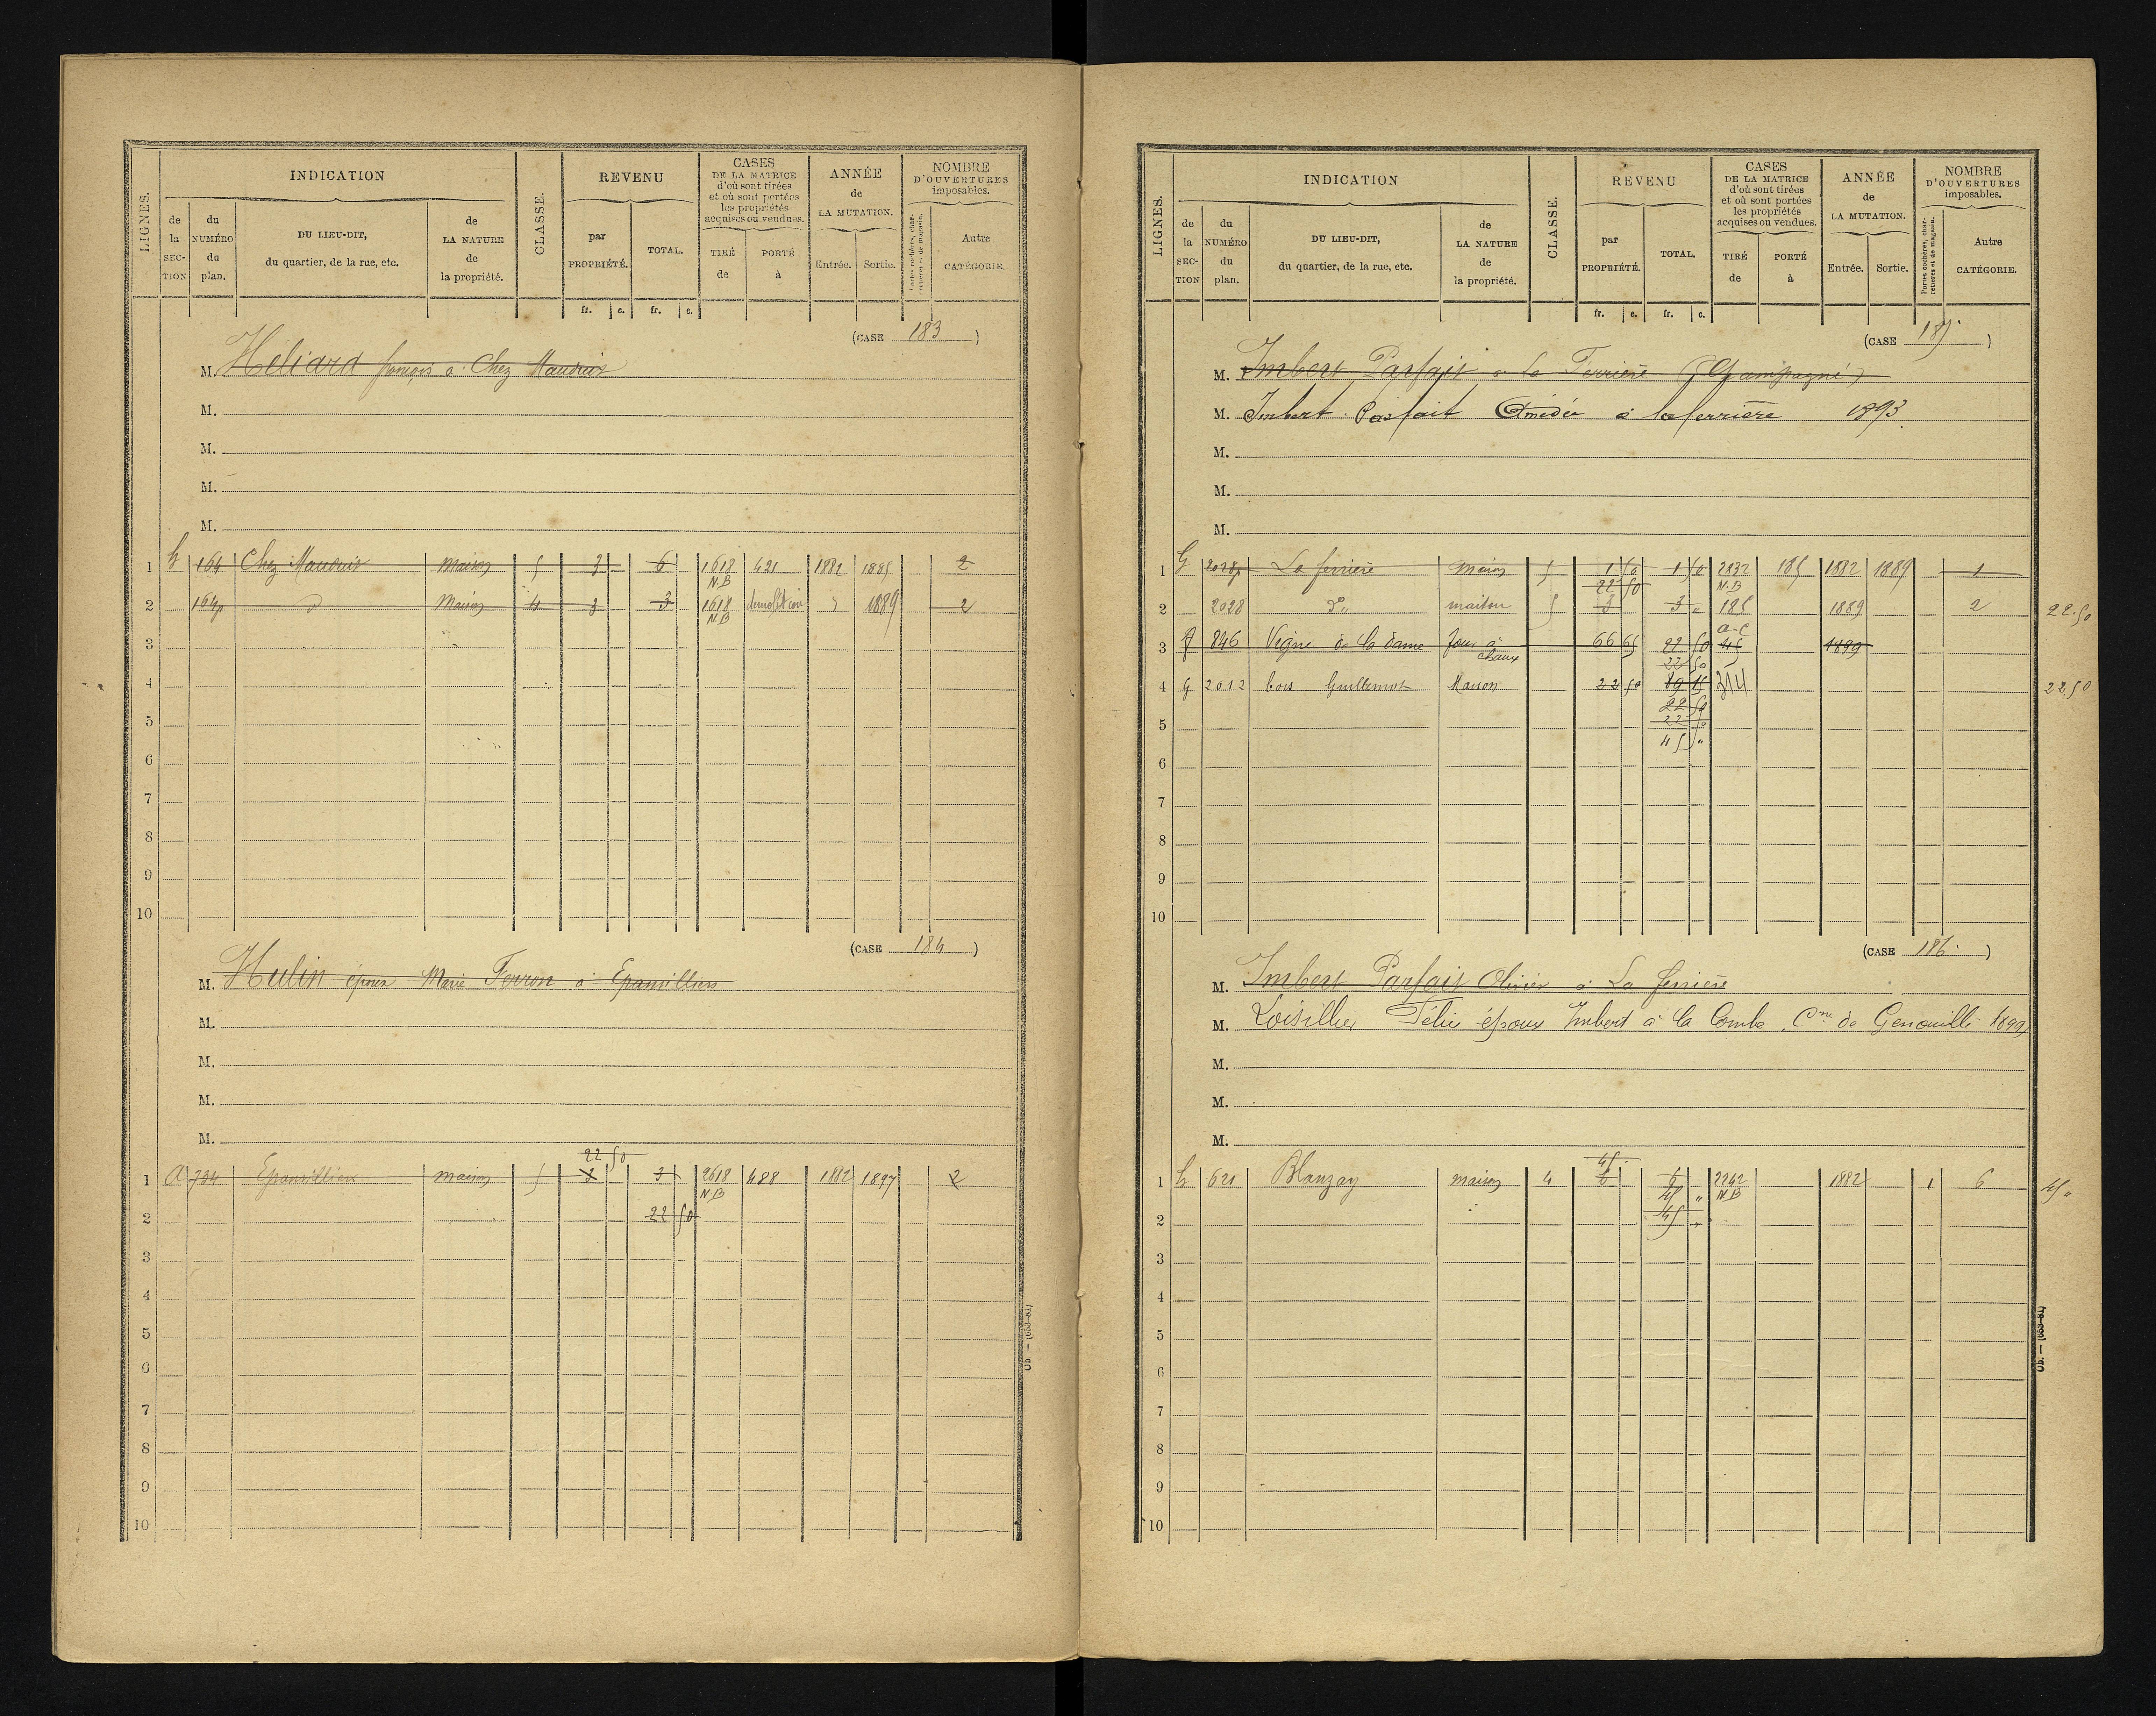 LIGNES. INDICATION CLASSE. REVENU CASES DE LA MATRICE d'où sont tirées et où sont portées les propriétés acquises ou vendues. ANNÉE de LA MUTATION. NOMBRE D'OUVERTURES imposables.
de la SECTION du NUMÉRO du plan. DU LIEU-DIT, du quartier, de la rue, etc. de LA NATURE de la propriété. par PROPRIÉTÉ. TOTAL. TIRÉ de PORTÉ à Entrée. Sortie. Portes cochères, charretières et de magasin. Autre CATÉGORIE.
fr. c. fr. c.
(CASE 183)
M. Héliard françois à Chez Mauduit
M.
M.
M.
M.
1 h 164 Chez Mauduit Maison 5 3 6 1618 N.B 421 1882 1885 2
2 164p d Maison 4 3 3 1618 N.B demolition 1889 2
3
4
5
6
7
8
9
10
(CASE 184)
M. Hulin époux Marie Ferron à Epanvilliers
M.
M.
M.
M.
22 50
1 A 734 Epanvilliers maison 5 3 3 2618 N.B 488 1882 1897 2
2 22 50
3
4
5
6
7
8
9
10
LIGNES. INDICATION CLASSE. REVENU CASES DE LA MATRICE d'où sont tirées et où sont portées les propriétés acquises ou vendues. ANNÉE de LA MUTATION. NOMBRE D'OUVERTURES imposables.
de la SECTION du NUMÉRO du plan. DU LIEU-DIT, du quartier, de la rue, etc. de LA NATURE de la propriété. par PROPRIÉTÉ. TOTAL. TIRÉ de PORTÉ à Entrée. Sortie. Portes cochères, charretières et de magasin. Autre CATÉGORIE.
fr. c. fr. c.
(CASE 185)
M. Imbert Parfait à la Ferrière (Champagné)
M. Imbert Parfait Amédée à la ferrière 1893
M.
M.
M.
1 G 2028p La ferrière Maison 5 1 50 1 50 2832 N.B 185 1882 1889 1
22 50
2 2028 d° maison 5 3 3 " 185 1889 2 22.50
a-c
3 A 846 Vigne de la dame four à chaux 66 65 22 50 45 1899
22 50
4 G 2012 bois Guillemot Maison 22 50 89 15 314 22.50
22 50
5 22 50
45 "
6
7
8
9
10
(CASE 186)
M. Imbert Parfait Olivier à La ferrière
M. Loisillier Félix époux Imbert à la Combe, Cne de Genouillé 1899
M.
M.
M.
45
1 h 621 Blanzay maison 4 6 6 2242 N.B 1882 1 6 45 "
45 "
2 45 "
3
4
5
6
7
8
9
10